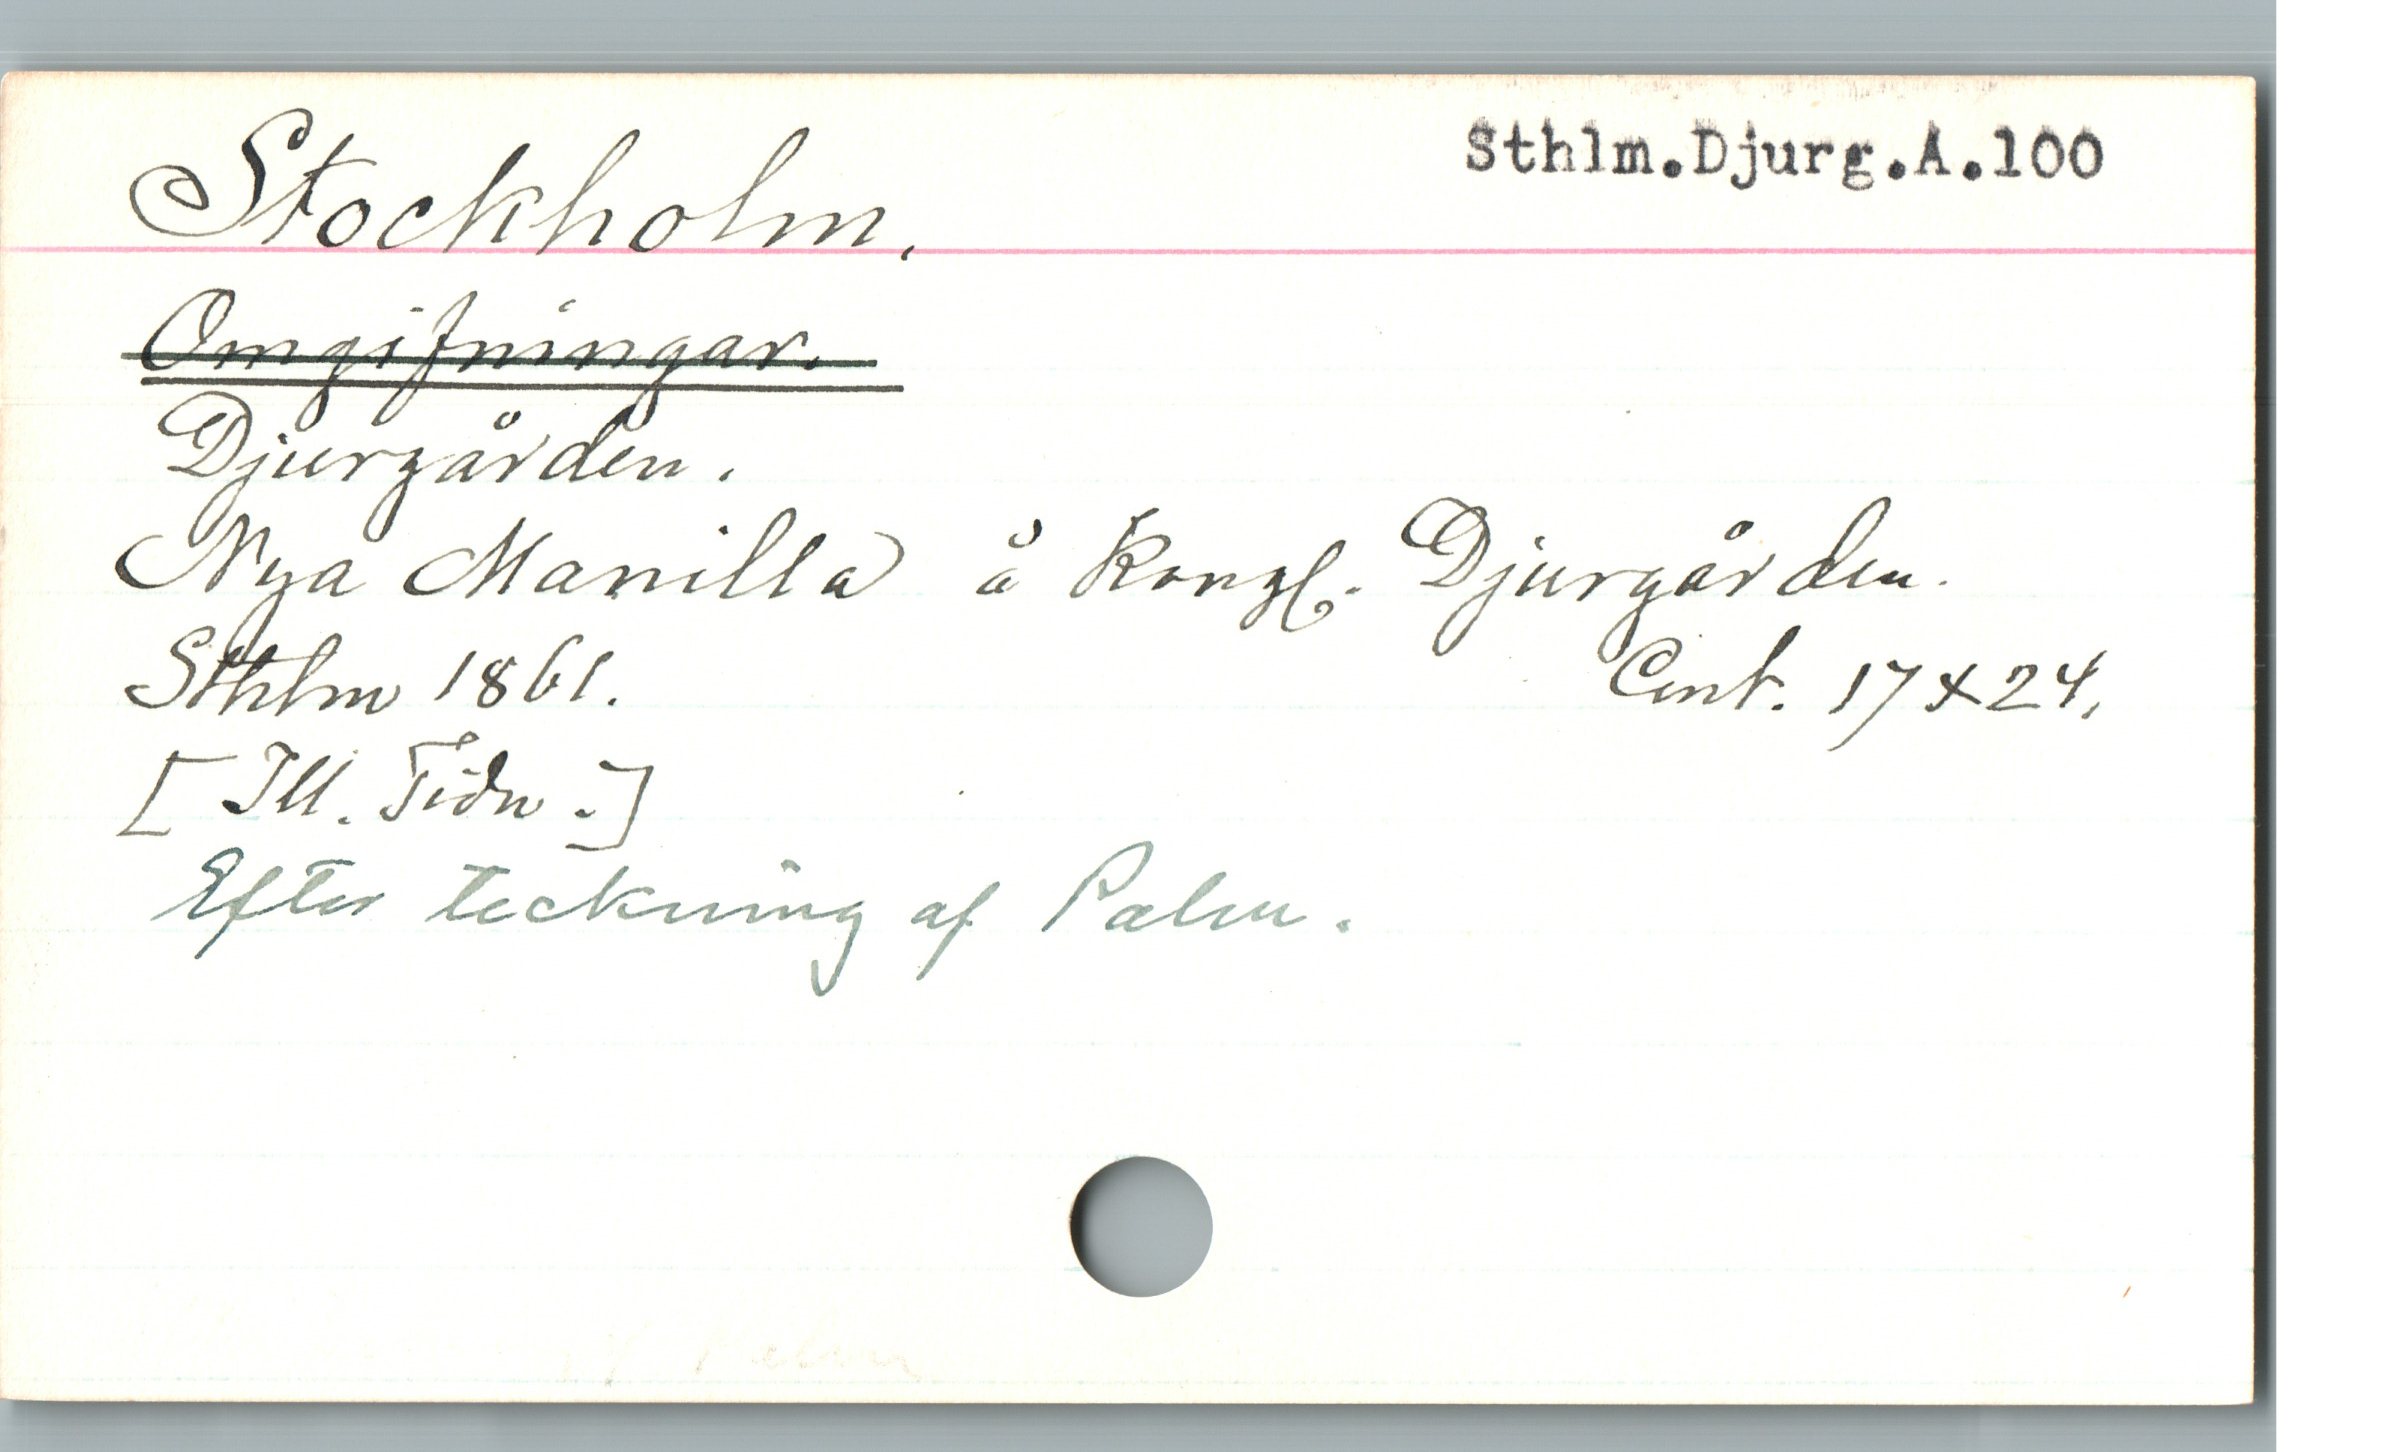 Stockholm.
Sthlm.Djurg.A.100
Omgifningar.
Djurgården.
Nya Manilla å Kongl. Djurgården.
Sthlm 1861. Cent. 17x24.
[Ill. Tidn.]
Efter teckning af Palm.